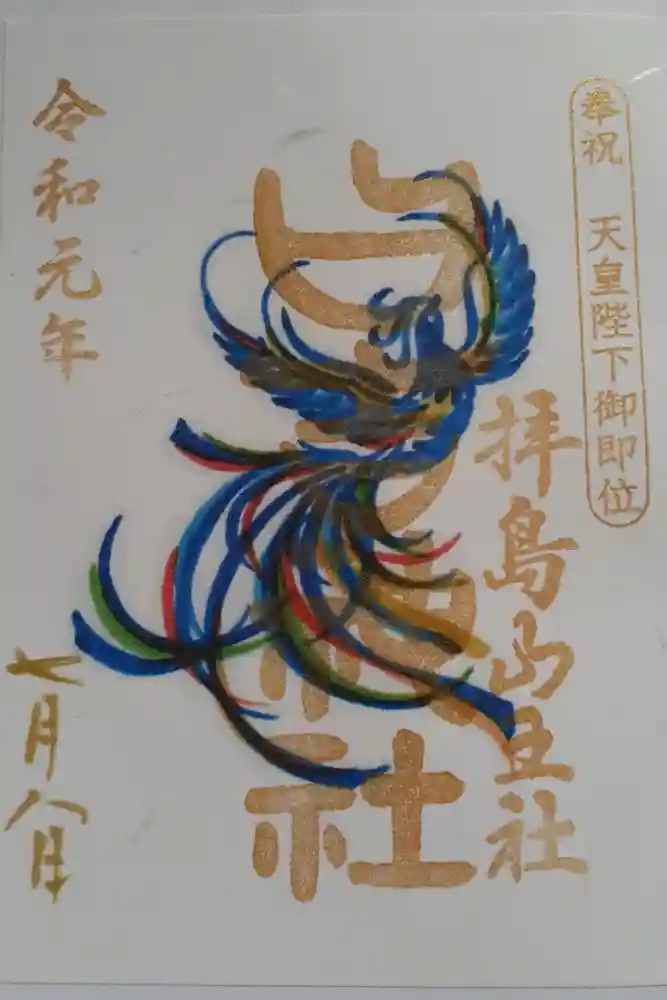 奉祝 天皇陛下御即位
拝島山王社
神社
令和元年
七月八日